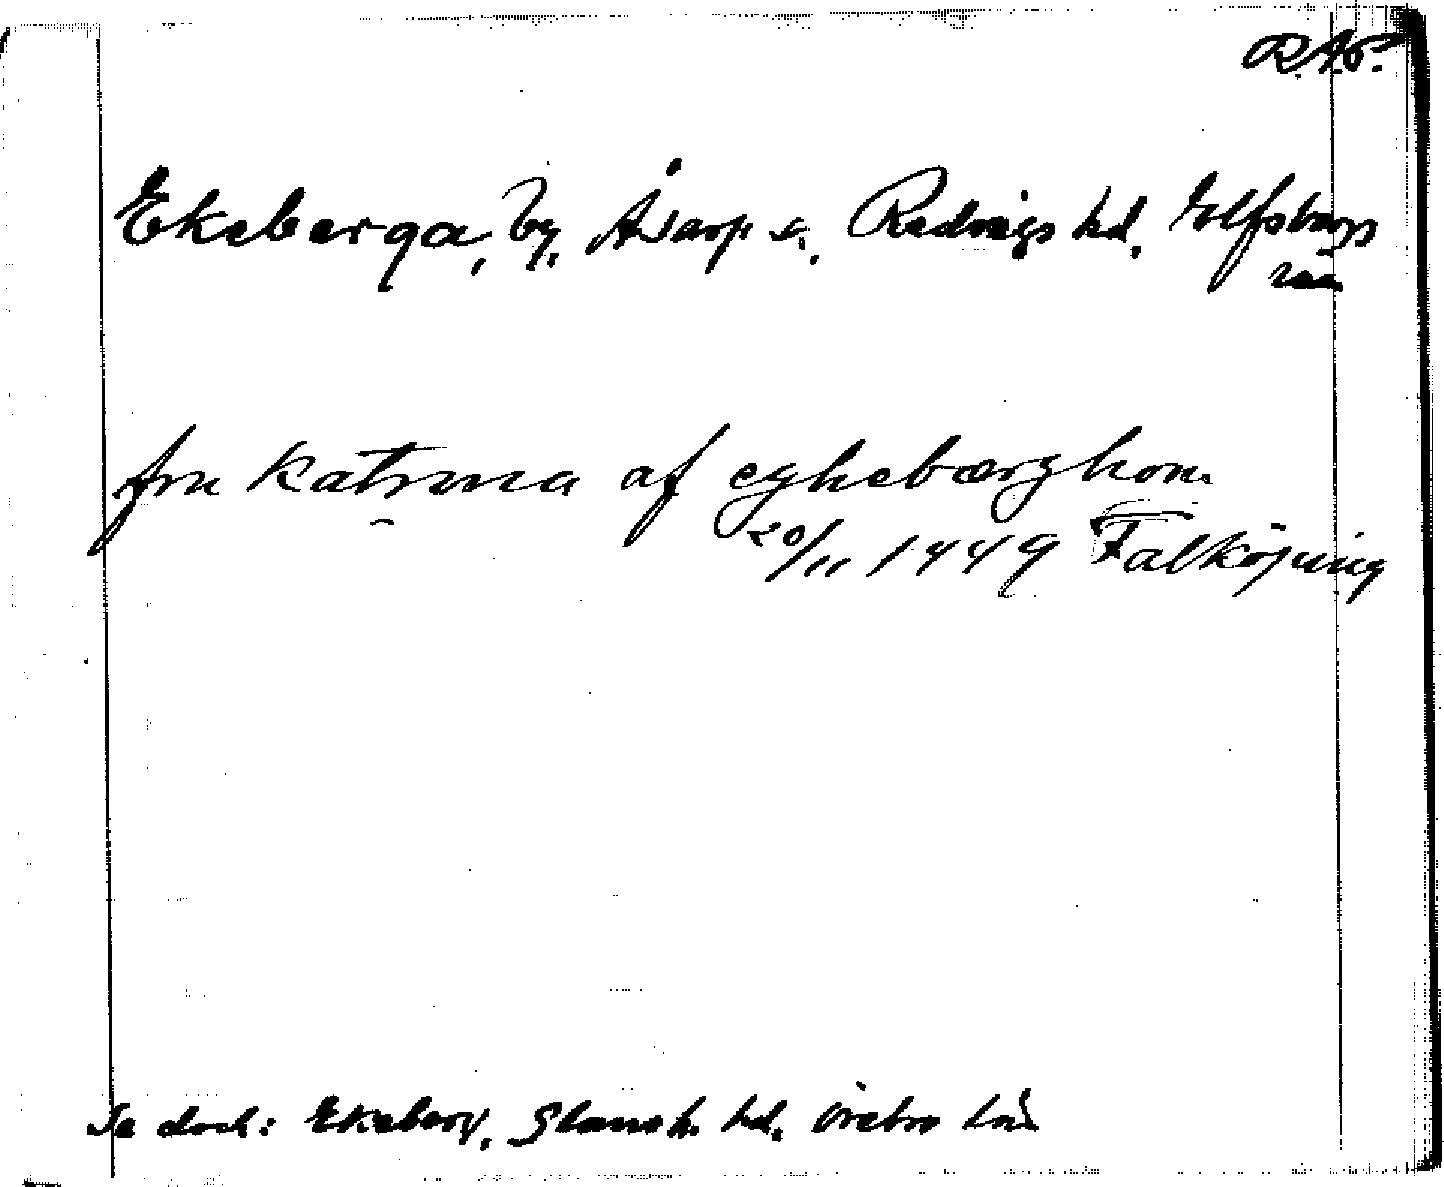 R.A.P.
Ekeberga, by, Åsarp s., Redvägs hd. Elfsborgs
län
fru katrina af eghebærghom
20/11 1449 Falköping
Se dock: Ekeberg, Glansh. hd. Örebro län